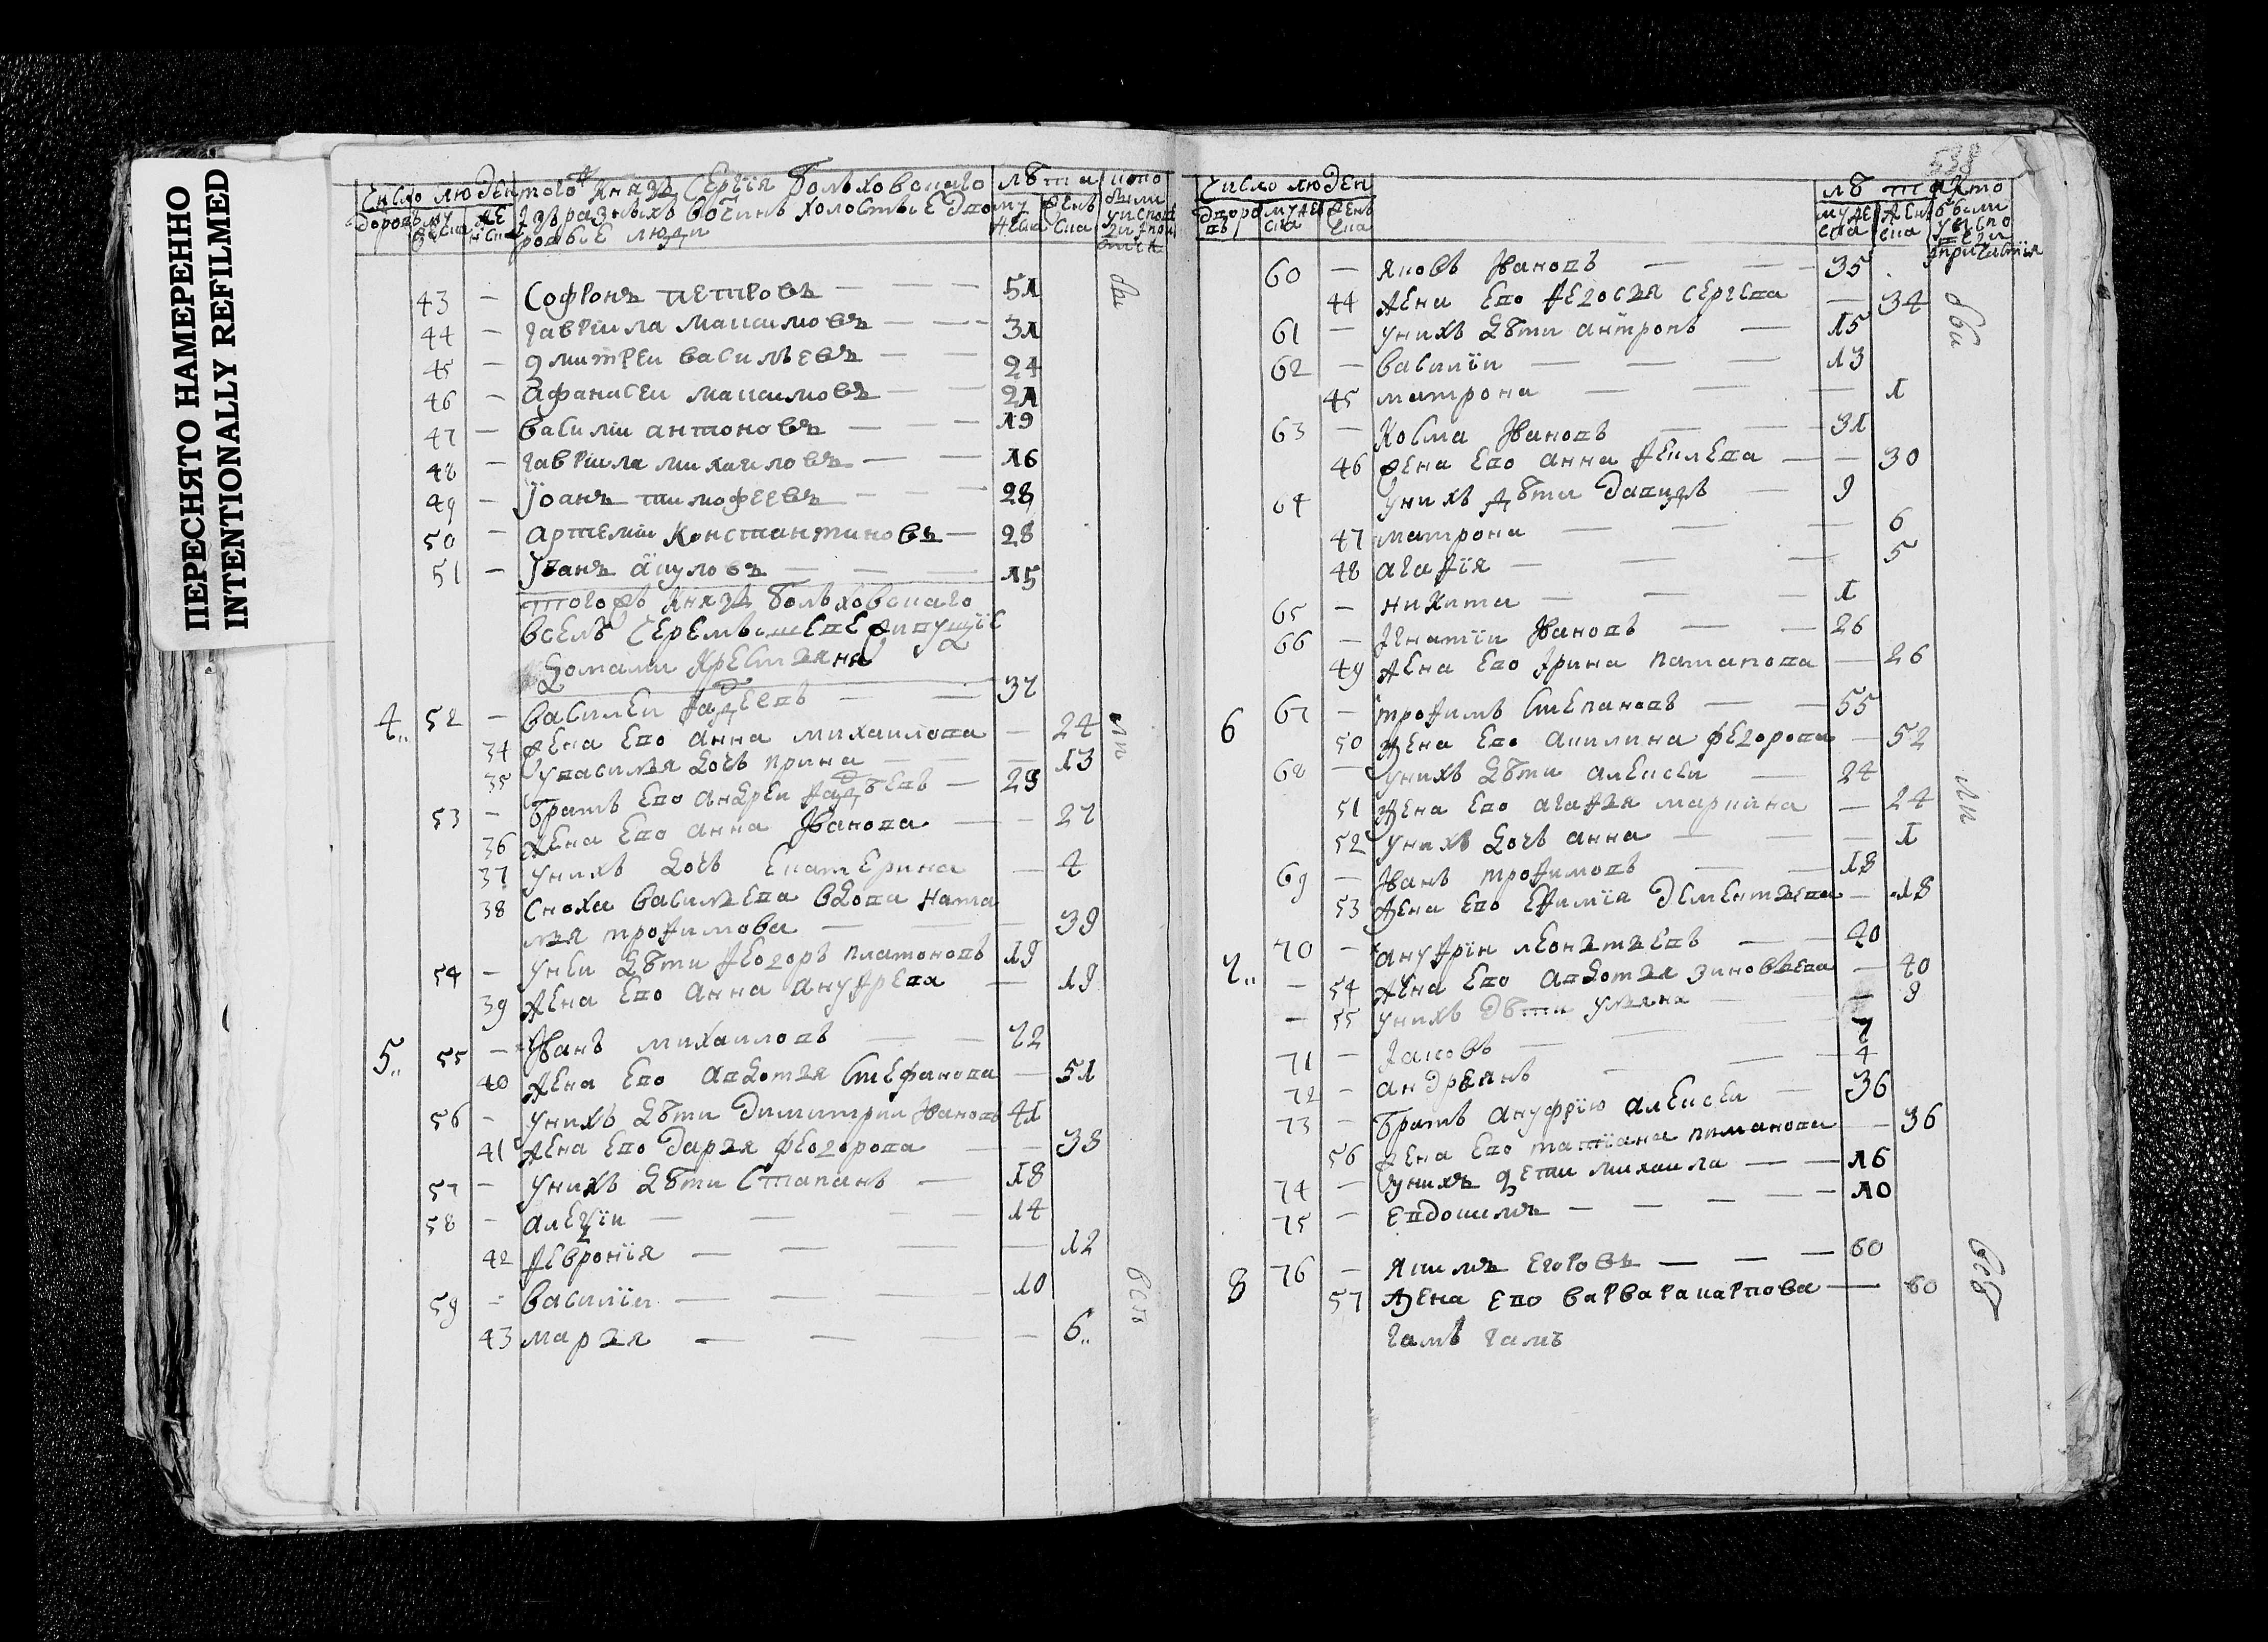 ПЕРЕСНЯТО НАМЕРЕННО
INTENTIONALLY REFILMED
Число люден того ж Князя Сергiя Болховскаго лѣта
Iзъ разныхъ вотчинъ холостые дво
ровые люди
43 — Софронъ петровъ — 51
44 — гавріила максимовъ — 31
45 — дмитреи васильевъ — 24
46 — афанасеи максимовъ — 21
47 — василіи антоновъ — 19
48 — гавріила михаиловъ — 16
49 — Iоанъ тимофеевъ — 28
50 — артеміи Константиновъ — 28
51 — Iванъ акуловъ — 15
тогожъ Князя Болховскаго
вселѣ живущiе
домами крестьяня
4 52 — василеи Фадеевъ — 37
34 жена ево анна михаилова — 24
35 увасилья дочь ирина — 13
53 — братъ ево андреи Фадѣевъ — 29
36 жена ево анна Iванова — 27
37 унихъ дочь екатерина — 4
38 сноха васильева вдова ната
лья трофимова — 39
54 — унеи дѣти Феодоръ платоновъ 19
39 жена ево анна ануфрева — 19
5 55 — Iванъ михаиловъ — 72
40 жена ево авдотья стефанова — 51
56 — унихъ дѣти димитрии Iвановъ 41
41 жена ево дарья феодорова — 38
57 — унихъ дѣти Стапанъ — 18
58 — алеѯiи — 14
42 Февронiя — 12
59 — василiи — 10
43 марья — 6
538
Число люден лѣта
60 — яковъ Iвановъ — 35
44 жена ево Федосья сергева — 34
61 — унихъ дѣти антропъ — 15
62 — василiи — 13
45 матрона — 1
63 — Косма Iвановъ — 31
46 жена ево анна — 30
64 унихъ дѣти давидъ — 9
47 матрона — 6
48 агафiя — 5
65 — никита — 1
66 — Iгнатiи Iвановъ — 26
49 жена ево Iрина патапова — 26
6 67 — трофимъ степановъ — 55
50 жена ево акилина федорова — 52
68 — унихъ дѣти алексеи — 24
51 жена ево агафья маркина — 24
52 унихъ дочь анна — 1
69 — Iванъ трофимовъ — 18
53 жена ево ефимiя дементьева — 18
7 70 — ануфрiи леонтьевъ — 40
54 жена ево авдотья зиновьева — 40
55 унихъ дѣти ульяна — 9
71 — Iаковъ — 7
72 — андреянъ — 4
73 — братъ ануфрiю алексеи — 36
56 жена ево татiана — 36
74 — унихъ дети михаила — 16
75 — евдокимъ — 10
8 76 — якимъ егоровъ — 60
57 жена ево варвара карпова — 60